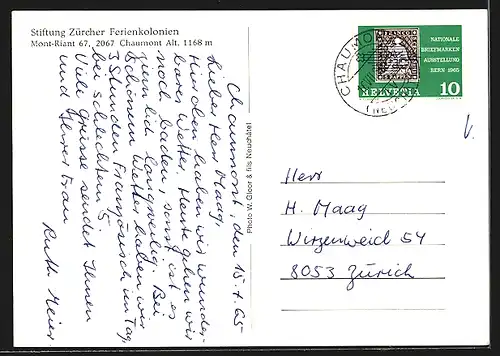 Stiftung Zürcher Ferienkolonien
Mont-Riant 67, 2067 Chaumont Alt. 1168 m
Chaumont, den 15.7.65
Lieber Herr Maag,
Hier oben haben wir wunder-
bares Wetter. Heute gehen wir
noch baden, sonst ist es
ziemlich langweilig. Bei
schönem Wetter haben wir
3 Stunden Französisch im Tag,
bei schlechtem 5
Viele Grüsse sendet Ihnen
und Ihrer Frau
Ruth Meier
Photo W. Gloor & fils Neuchâtel
CHAUMONT
(NEU
NATIONALE
BRIEFMARKEN
AUSSTELLUNG
BERN 1965
HELVETIA 10
Herr
H. Maag
Wirzenweid 54
8053 Zürich